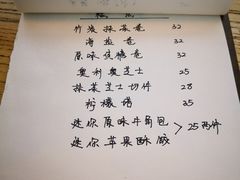 竹炭抹茶卷 32
海盐卷 32
原味伎糖卷 32
奥利奥芝士 25
抹茶芝士切件 28
柠檬塔 35
迷你原味牛角包
迷你苹果酥饺 > 25两件